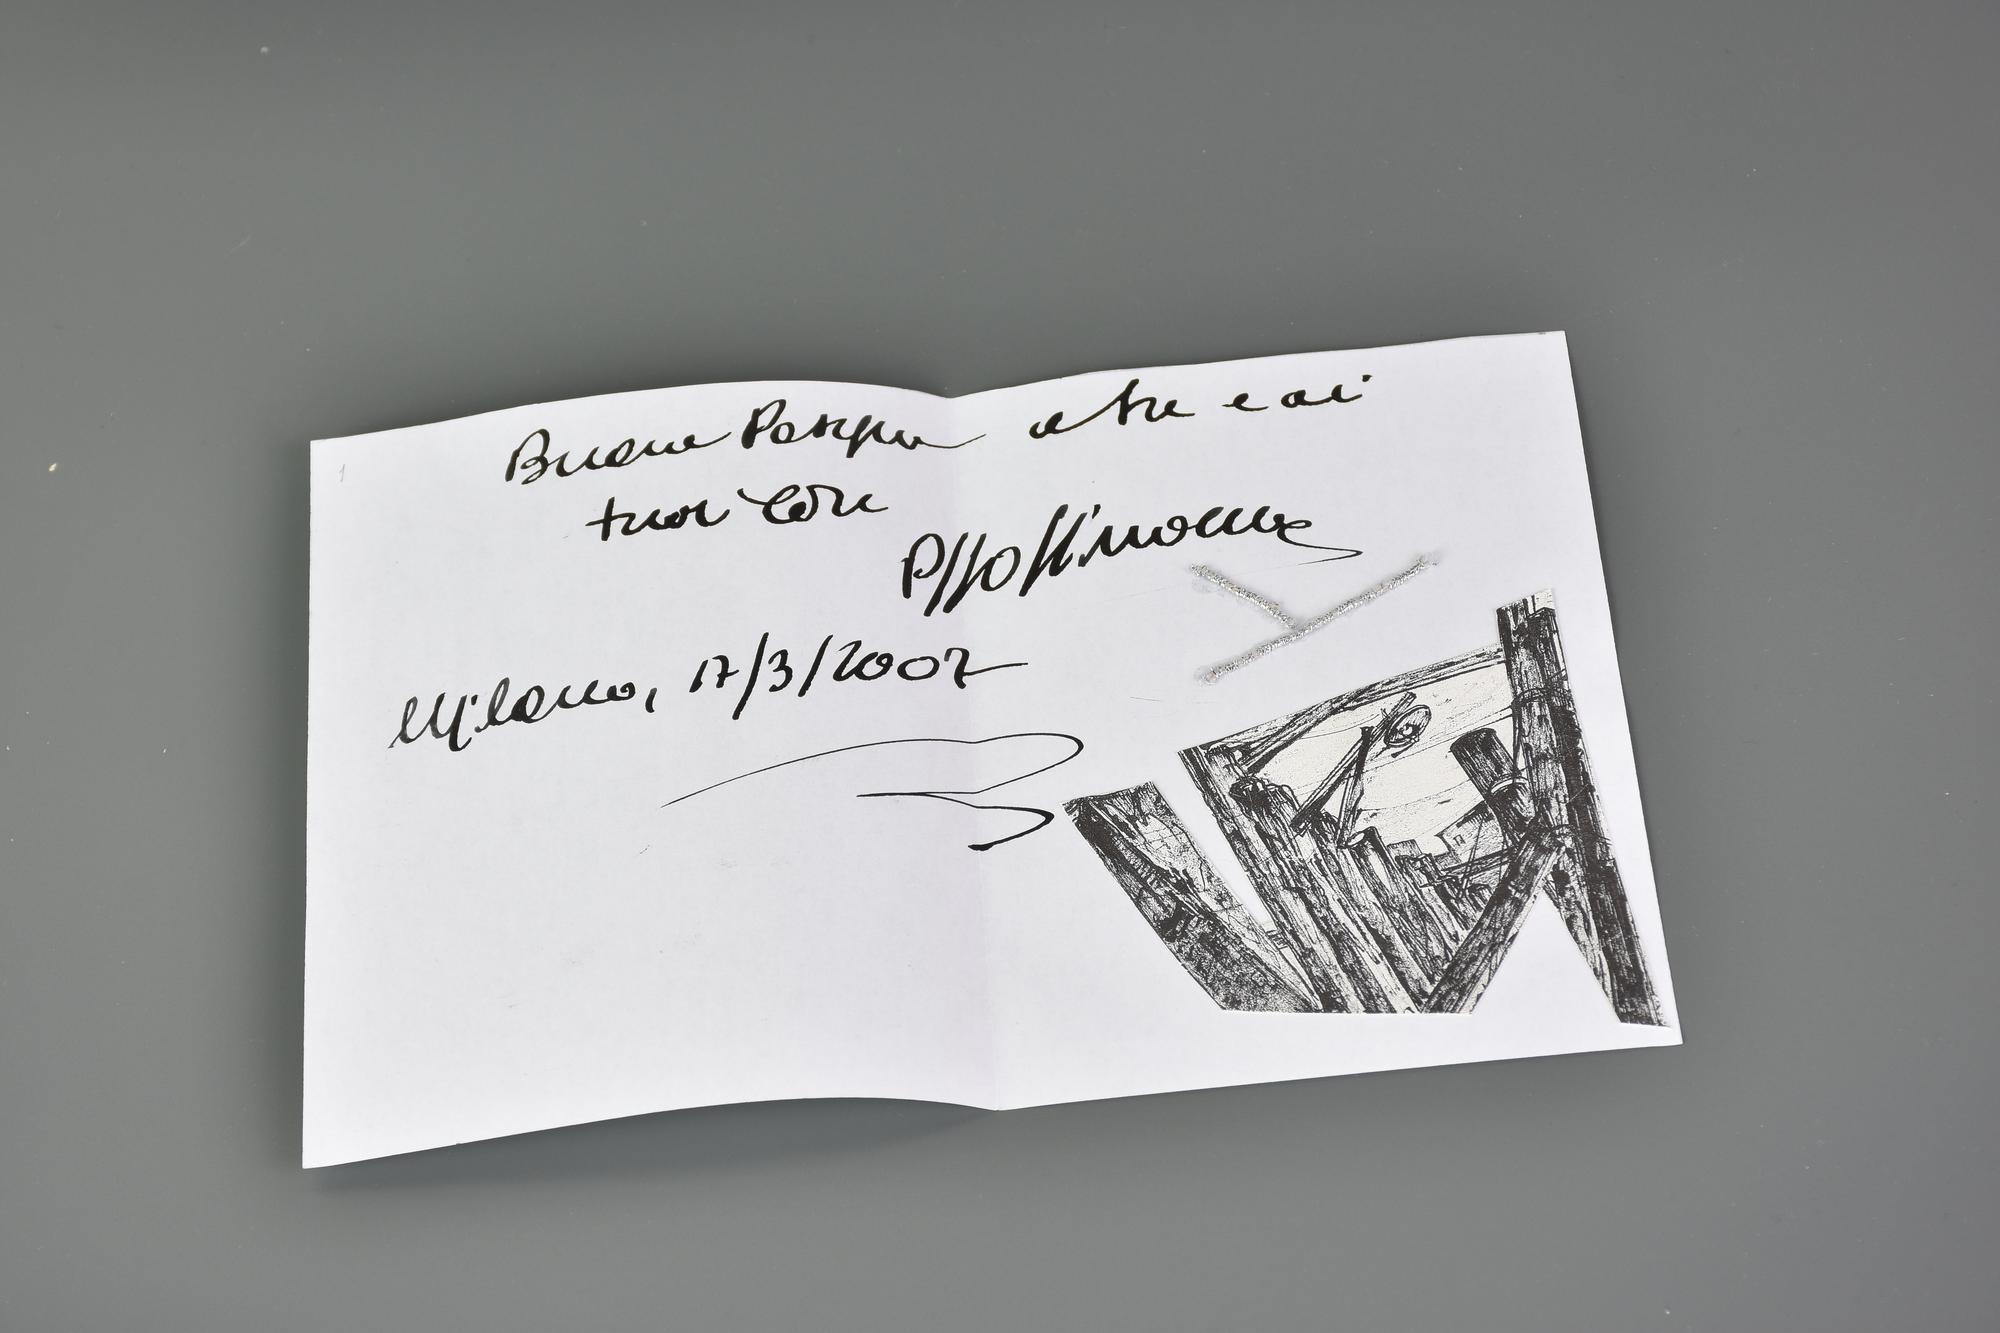 Buona Pasqua a te e ai
tuoi cari
Milano, 17/3/2002
1